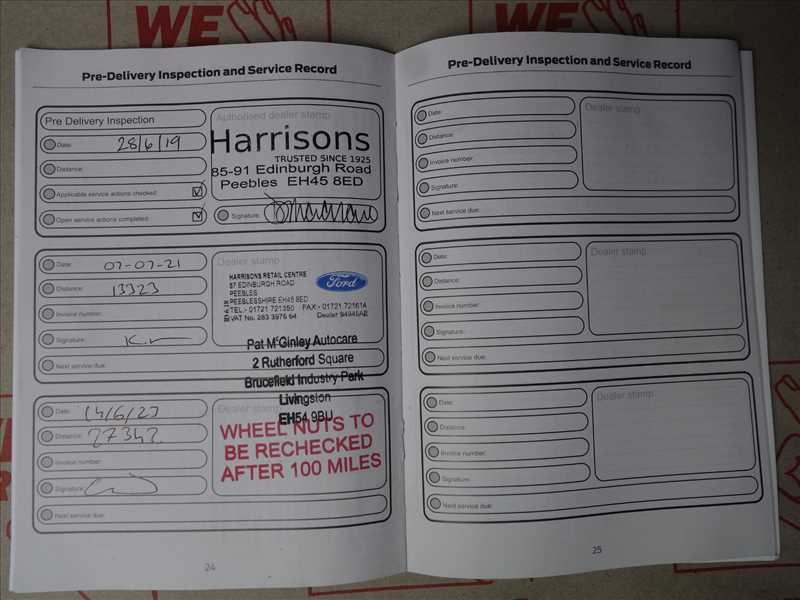 WE
WE
Pre-Delivery Inspection and Service Record
Pre Delivery Inspection
Authorised dealer stamp
Date: 28/6/19
Distance:
Applicable service actions checked:
Open service actions completed:
Harrisons
TRUSTED SINCE 1925
85-91 Edinburgh Road
Peebles EH45 8ED
Signature:
Date: 07-07-21
Distance: 13323
Invoice number:
Signature:
Next service due:
Dealer stamp
HARRISONS RETAIL CENTRE
87 EDINBURGH ROAD
PEEBLES
PEEBLESSHIRE EH45 8ED
TEL:- 01721 721350 FAX:- 01721 72161A
VAT No. 283 3976 64 Dealer 94945AB
Ford
Pat McGinley Autocare
2 Rutherford Square
Brucefield Industry Park
Livingston
EH54 9BU
Date: 14/6/23
Distance: 27342
Invoice number:
Signature:
Next service due:
Dealer stamp
WHEEL NUTS TO
BE RECHECKED
AFTER 100 MILES
24
Pre-Delivery Inspection and Service Record
Date:
Distance:
Invoice number:
Signature:
Next service due:
Dealer stamp
Date:
Distance:
Invoice number:
Signature:
Next service due:
Dealer stamp
Date:
Distance:
Invoice number:
Signature:
Next service due:
Dealer stamp
25